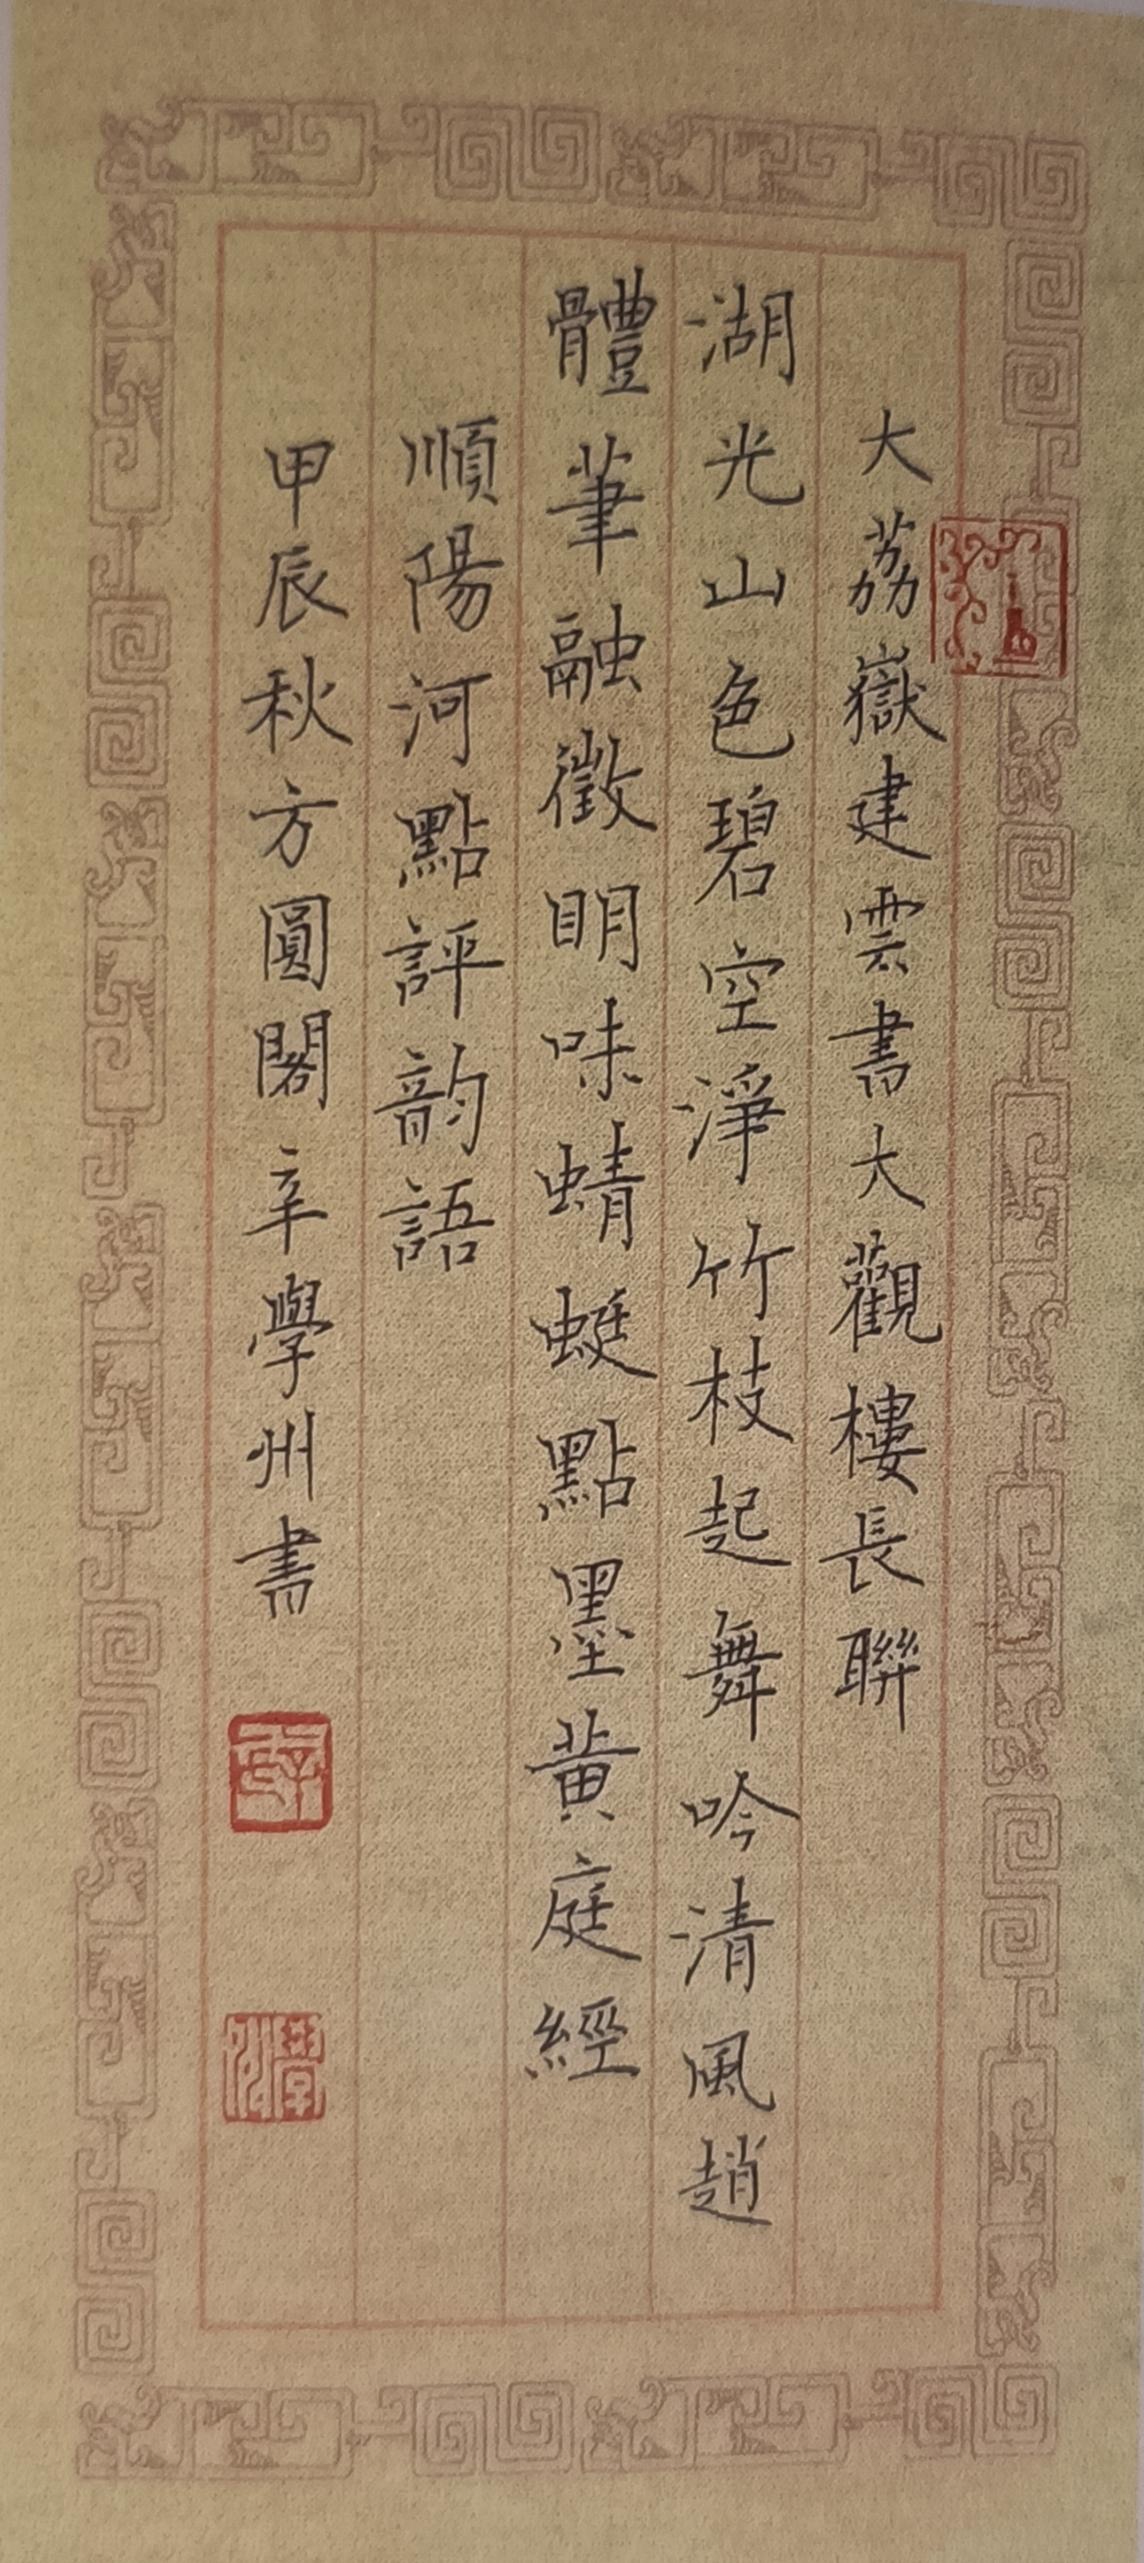 大荔嶽建雲書大觀樓長聯
湖光山色碧空淨竹枝起舞吟清風趙
體筆融徵眀味蜻蜓點墨黄庭經
順陽河點評韵語
甲辰秋方圓閣辛學州書
辛
學州